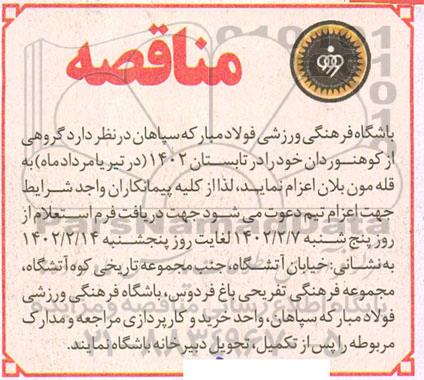 مناقصه
باشگاه فرهنگی ورزشی فولاد مبارکه سپاهان در نظر دارد گروهی
از کوهنوردان خود را در تابستان ۱۴۰۲ (در تیر یا مرداد ماه) به
قله مون بلان اعزام نماید، لذا از کلیه پیمانکاران واجد شرایط
جهت اعزام تیم دعوت می شود جهت دریافت فرم استعلام از
روز پنج شنبه ۱۴۰۲/۲/۷ لغایت روز پنجشنبه ۱۴۰۲/۲/۱۴
به نشانی: خیابان آتشگاه، جنب مجموعه تاریخی کوه آتشگاه،
مجموعه فرهنگی تفریحی باغ فردوس، باشگاه فرهنگی ورزشی
فولاد مبارکه سپاهان، واحد خرید و کارپردازی مراجعه و مدارک
مربوطه را پس از تکمیل، تحویل دبیرخانه باشگاه نمایند.
ParsNamadData